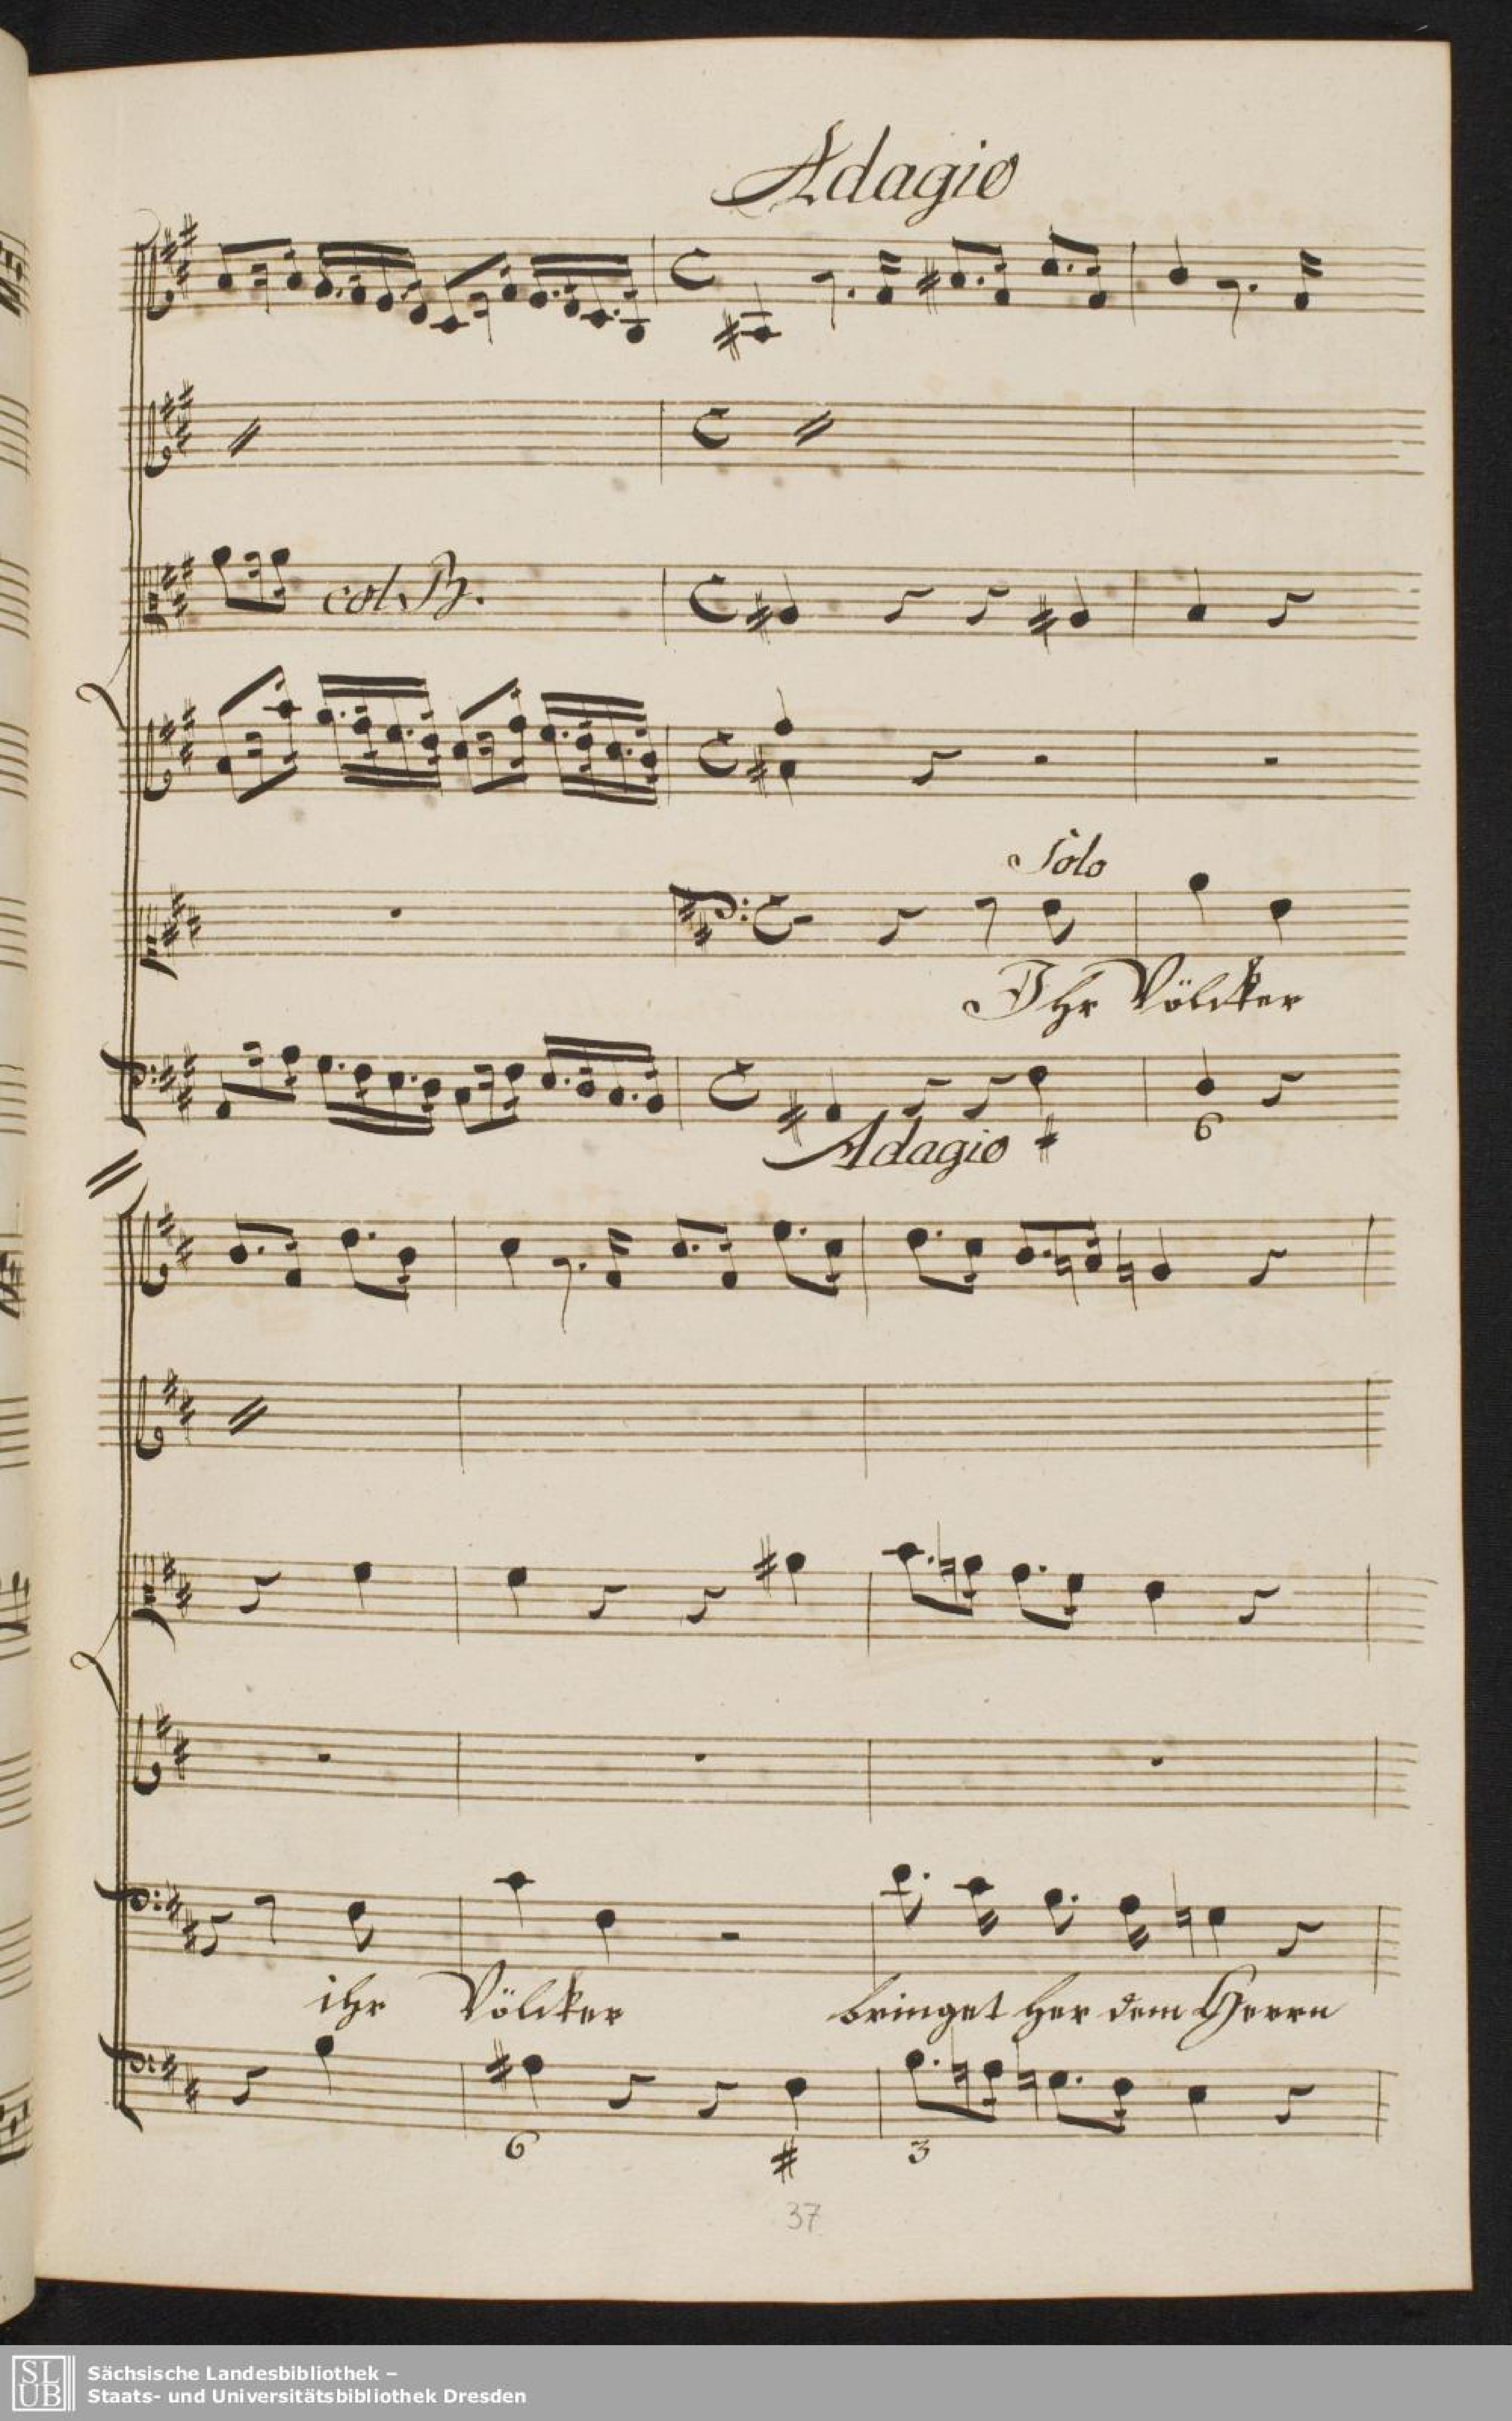 Adagio
col. B.
Solo
Ihr Völcker
6
Adagio
ihr Völcker bringet her dem Herrn
6
3
37
SLUB
Sächsische Landesbibliothek –
Staats- und Universitätsbibliothek Dresden